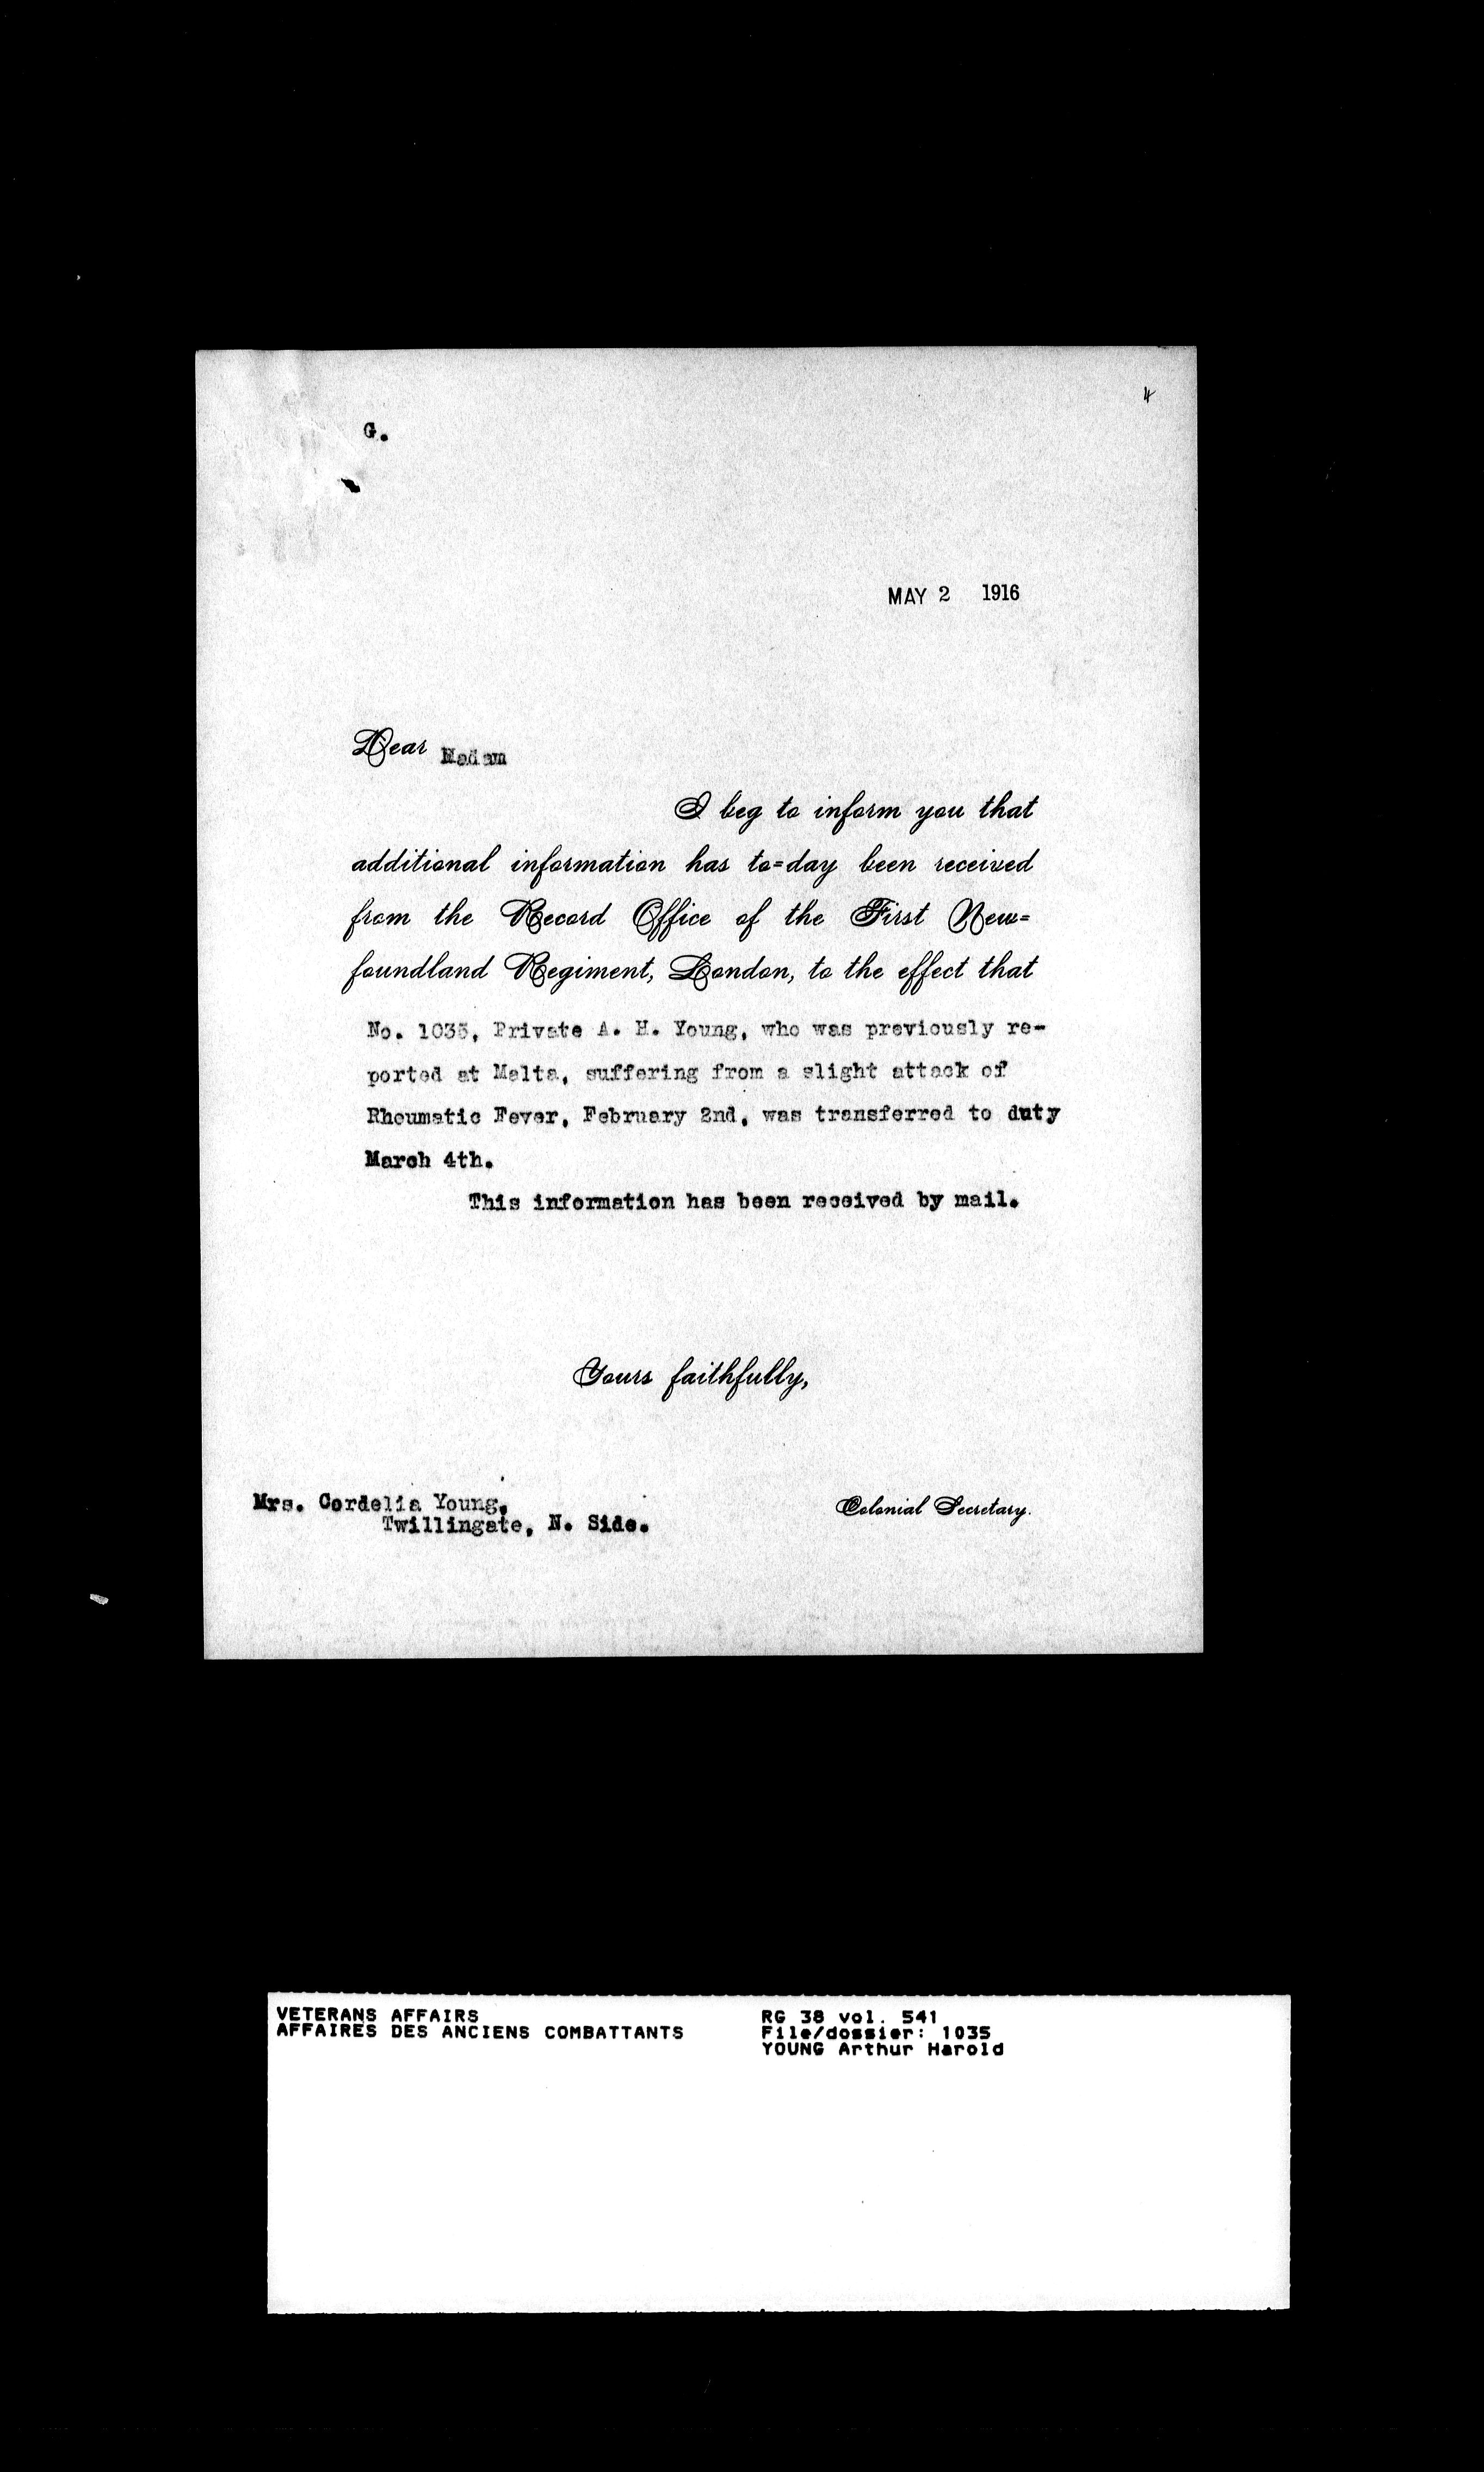 4
G.
MAY 2 1916
Dear Madam
I beg to inform you that
additional information has to=day been received
from the Record Office of the First New=
foundland Regiment, London, to the effect that
No. 1035, Private A. H. Young, who was previously re-
ported at Malta, suffering from a slight attack of
Rheumatic Fever, February 2nd, was transferred to duty
March 4th.
This information has been received by mail.
Yours faithfully,
Mrs. Cordelia Young,
Twillingate, N. Side.
Colonial Secretary.
VETERANS AFFAIRS
AFFAIRES DES ANCIENS COMBATTANTS
RG 38 vol. 541
File/dossier: 1035
YOUNG Arthur Harold